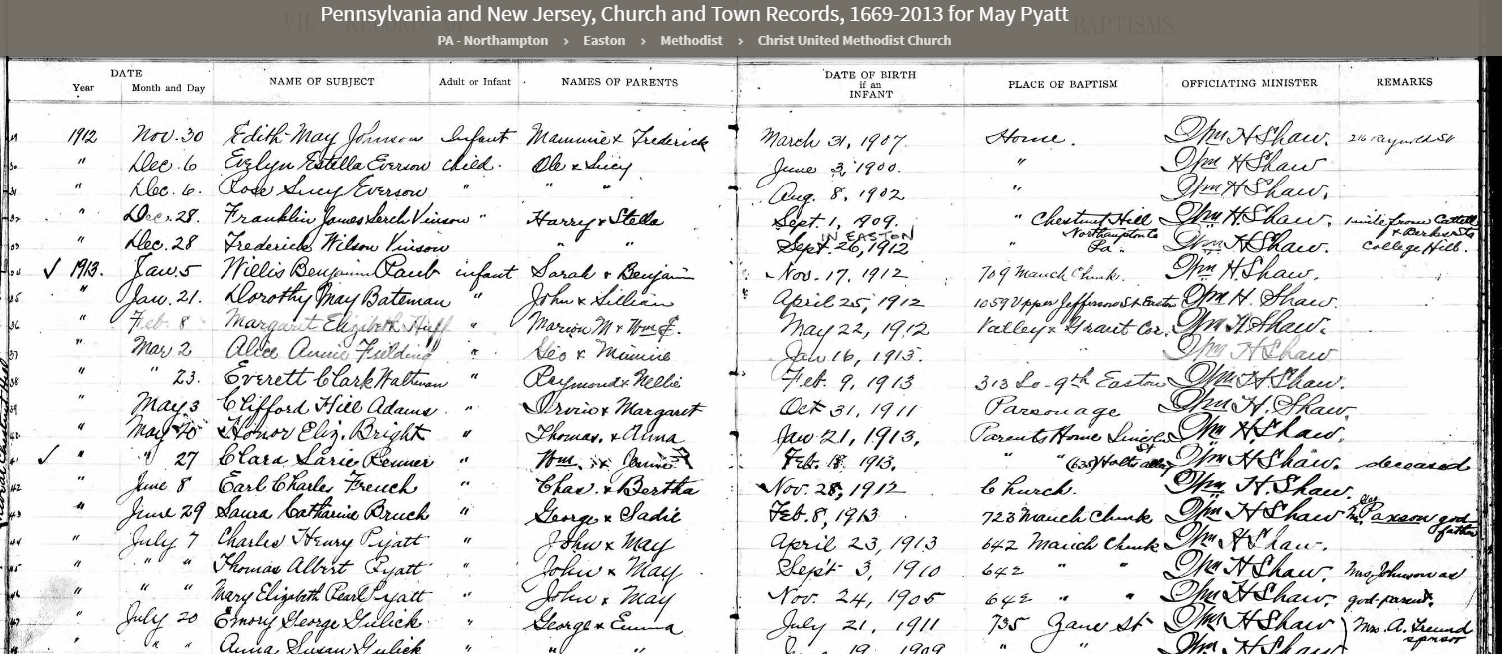 Pennsylvania and New Jersey, Church and Town Records, 1669-2013 for May Pyatt
PA - Northampton › Easton › Methodist › Christ United Methodist Church
DATE Year Month and Day NAME OF SUBJECT Adult or Infant NAMES OF PARENTS DATE OF BIRTH if an INFANT PLACE OF BAPTISM OFFICIATING MINISTER REMARKS
1912 Nov. 30 Edith May Johnson Infant Mammie & Frederick March 31, 1907 Home. Wm H Shaw.
" Dec. 6 Evelyn Estella Everson child. Ole & Lucy June 3, 1900 " Wm H Shaw
" Dec. 6. Rose Lucy Everson " " " Aug. 8, 1902 " Wm H Shaw.
" Dec. 28. Franklin James Lerch Vinson " Harry & Stella Sept. 1, 1909. " Chestnut Hill Northampton Co Pa. Wm H. Shaw. 1 mile from Cattell & Berks Sts
" Dec. 28 Frederick Wilson Vinson " " IN EASTON Sept. 26, 1912 " Wm H Shaw. College Hill.
✓ 1913. Jan. 5 Willis Benjamin Raub infant Sarah & Benjamin Nov. 17, 1912 709 Mauch Chunk. Wm H Shaw.
" Jan. 21. Dorothy May Bateman " John & Lillian April 25, 1912 1059 Upper Jefferson St Easton Wm H. Shaw.
" Feb. 8 Margaret Elizabeth Huff " Marion M & Wm F. May 22, 1912 Valley & Grant Cor. Wm H Shaw.
" Mar 2 Alice Annie Fielding " Geo & Minnie Jan 16, 1913. Wm H Shaw
" " 23. Everett Clark Waltman " Raymond & Nellie Feb. 9, 1913 313 So- 9th Easton Wm H Shaw.
" May 3 Clifford Hill Adams " Irvin & Margaret Oct 31, 1911 Parsonage Wm H. Shaw.
" May Honor Eliz. Bright " Thomas. & Anna Jan 21, 1913. Parents Home Wm H Shaw.
✓ " " 27 Clara Sarie Renner " Wm. & Feb. 18 1913. " " Wm H Shaw. deceased
" June 8 Earl Charles French " Chas. & Bertha Nov. 28, 1912 Church. Wm H. Shaw.
" June 29 Laura Catharine Bruch " George & Sadie Feb. 8, 1913 723 Mauch Chunk Wm H Shaw Paxson god father
" July 7 Charles Henry Pyatt " John & May April 23, 1913 642 Mauch Chunk Wm H Shaw.
" " " Thomas Albert Pyatt " John & May Sept 3, 1910 642 " " Wm H Shaw. Mrs. Johnson as
" " " Mary Elizabeth Pearl Pyatt John & May Nov. 24, 1905 642 " " Wm H Shaw. god-parent.
" July 20 Emory George Gulick " George & Emma July 21, 1911 735 Zane St Wm H Shaw Mrs. A. Freund sponsor
" " " Anna Susan Gulick " " 19, 1909 " " Wm H Shaw